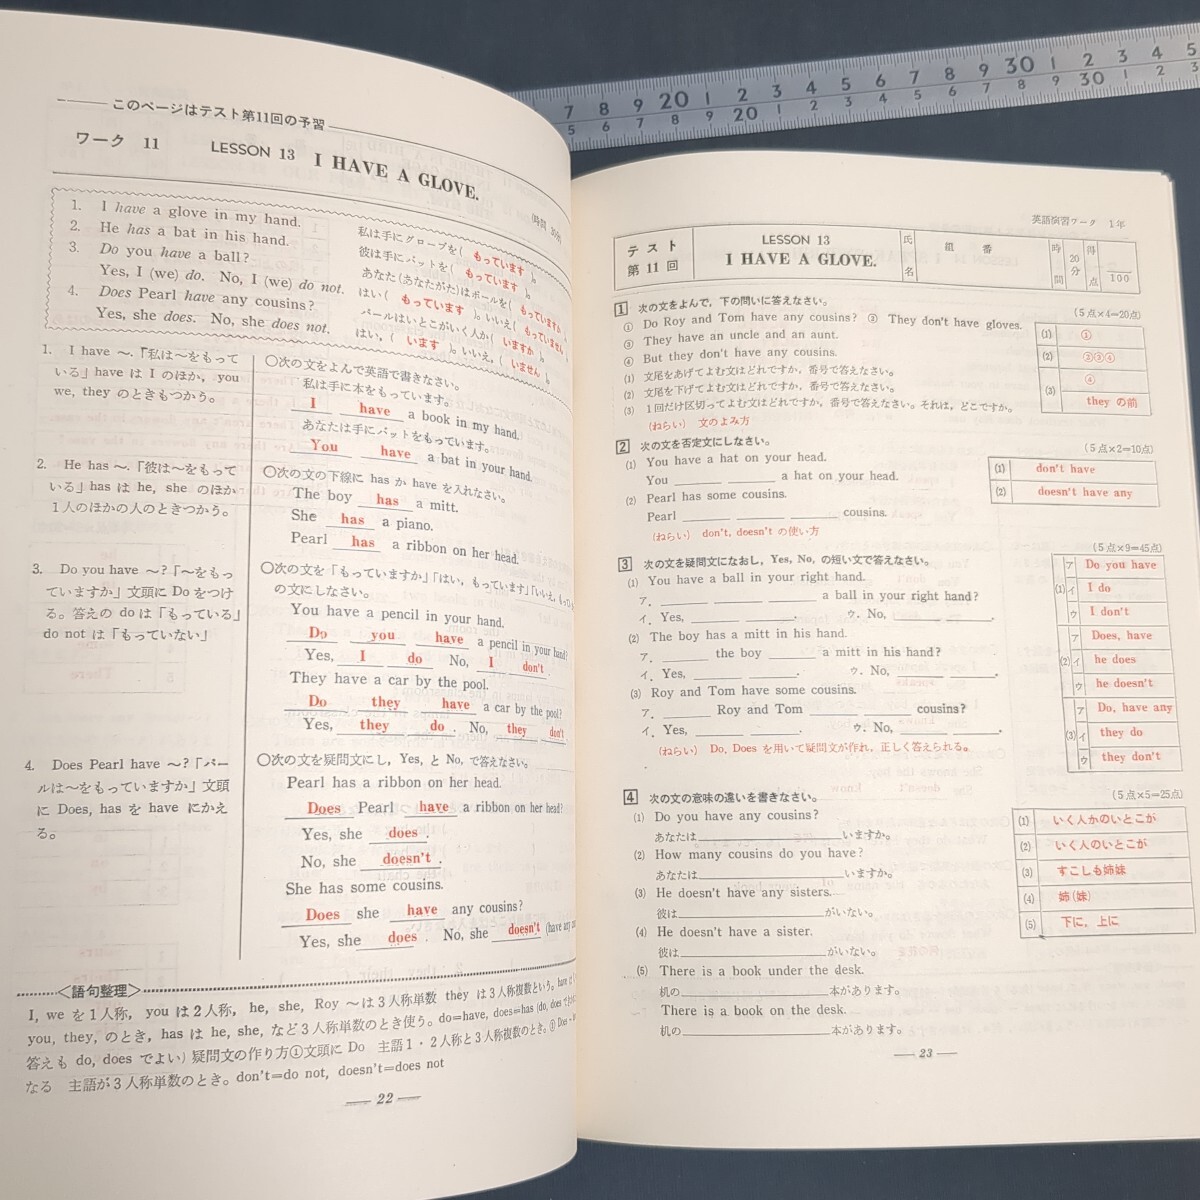 このページはテスト第11回の予習
ワーク 11 LESSON 13 I HAVE A GLOVE.
1. I have a glove in my hand.
2. He has a bat in his hand.
3. Do you have a ball?
Yes, I (we) do. No, I (we) do not.
4. Does Pearl have any cousins?
Yes, she does. No, she does not.
私は手にグローブを( もっています )。
彼は手にバットを( もっています )。
あなた(あなたがた)はボールを( もっていますか )。
はい( もっています )。いいえ( もっていません )。
パールはいとこがいく人か( いますか )。
はい, ( います )。いいえ, ( いません )。
1. I have ～.「私は～をもって
いる」have は I のほか, you
we, they のときもつかう。
2. He has ～.「彼は～をもって
いる」has は he, she のほか
1人のほかの人のときつかう。
3. Do you have ～?「～をもっ
ていますか」文頭に Do をつけ
る。答えの do は「もっている」
do not は「もっていない」
4. Does Pearl have ～?「パー
ルは～をもっていますか」文頭
に Does, has を have にかえ
る。
○次の文をよんで英語で書きなさい。
私は手に本をもっています。
I have a book in my hand.
あなたは手にバットをもっています。
You have a bat in your hand.
○次の文の下線に has か have を入れなさい。
The boy has a mitt.
She has a piano.
Pearl has a ribbon on her head.
○次の文を「もっていますか」「はい, もっています」「いいえ, もってい
の文にしなさい。
You have a pencil in your hand.
Do you have a pencil in your hand?
Yes, I do No, I don't.
They have a car by the pool.
Do they have a car by the pool?
Yes, they do. No, they don't.
○次の文を疑問文にし, Yes, と No, で答えなさい。
Pearl has a ribbon on her head.
Does Pearl have a ribbon on her head?
Yes, she does.
No, she doesn't.
She has some cousins.
Does she have any cousins?
Yes, she does. No, she doesn't (have any
〈語句整理〉
I, we を1人称, you は2人称, he, she, Roy ～は3人称単数 they は3人称複数という。have は
you, they, のとき, has は he, she, など3人称単数のとき使う。do=have, does=has (do, does で
答えも do, does でよい) 疑問文の作り方①文頭に Do 主語1・2人称と3人称複数のとき。② Does ～
なる 主語が3人称単数のとき。don't=do not, doesn't=does not
22
英語演習ワーク 1年
テスト 第11回
LESSON 13
I HAVE A GLOVE.
氏名 組 番 時間 20分 得点 100
1 次の文をよんで, 下の問いに答えなさい。 (5点×4=20点)
① Do Roy and Tom have any cousins? ② They don't have gloves.
③ They have an uncle and an aunt.
④ But they don't have any cousins.
(1) 文尾をあげてよむ文はどれですか, 番号で答えなさい。
(2) 文尾を下げてよむ文はどれですか, 番号で答えなさい。
(3) 1回だけ区切ってよむ文はどれですか, 番号で答えなさい。それは, どこですか。
(ねらい) 文のよみ方
(1) ①
(2) ②③④
(3) ④
they の前
2 次の文を否定文にしなさい。 (5点×2=10点)
(1) You have a hat on your head.
You a hat on your head.
(2) Pearl has some cousins.
Pearl cousins.
(ねらい) don't, doesn't の使い方
(1) don't have
(2) doesn't have any
3 次の文を疑問文になおし, Yes, No, の短い文で答えなさい。 (5点×9=45点)
(1) You have a ball in your right hand.
ア. a ball in your right hand?
イ. Yes, . ウ. No, .
(2) The boy has a mitt in his hand.
ア. the boy a mitt in his hand?
イ. Yes, . ウ. No, .
(3) Roy and Tom have some cousins.
ア. Roy and Tom cousins?
イ. Yes, . ウ. No, .
(ねらい) Do, Does を用いて疑問文が作れ, 正しく答えられる。
(1) ア Do you have
イ I do
ウ I don't
(2) ア Does, have
イ he does
ウ he doesn't
(3) ア Do, have any
イ they do
ウ they don't
4 次の文の意味の違いを書きなさい。 (5点×5=25点)
(1) Do you have any cousins?
あなたは いますか。
(2) How many cousins do you have?
あなたは いますか。
(3) He doesn't have any sisters.
彼は がいない。
(4) He doesn't have a sister.
彼は がいない。
(5) There is a book under the desk.
机の 本があります。
There is a book on the desk.
机の 本があります。
(1) いく人かのいとこが
(2) いく人のいとこが
(3) すこしも姉妹
(4) 姉(妹)
(5) 下に, 上に
23
7 8 9 20 1 2 3 4 5 6 7 8 9 30 1 2 3 4 5